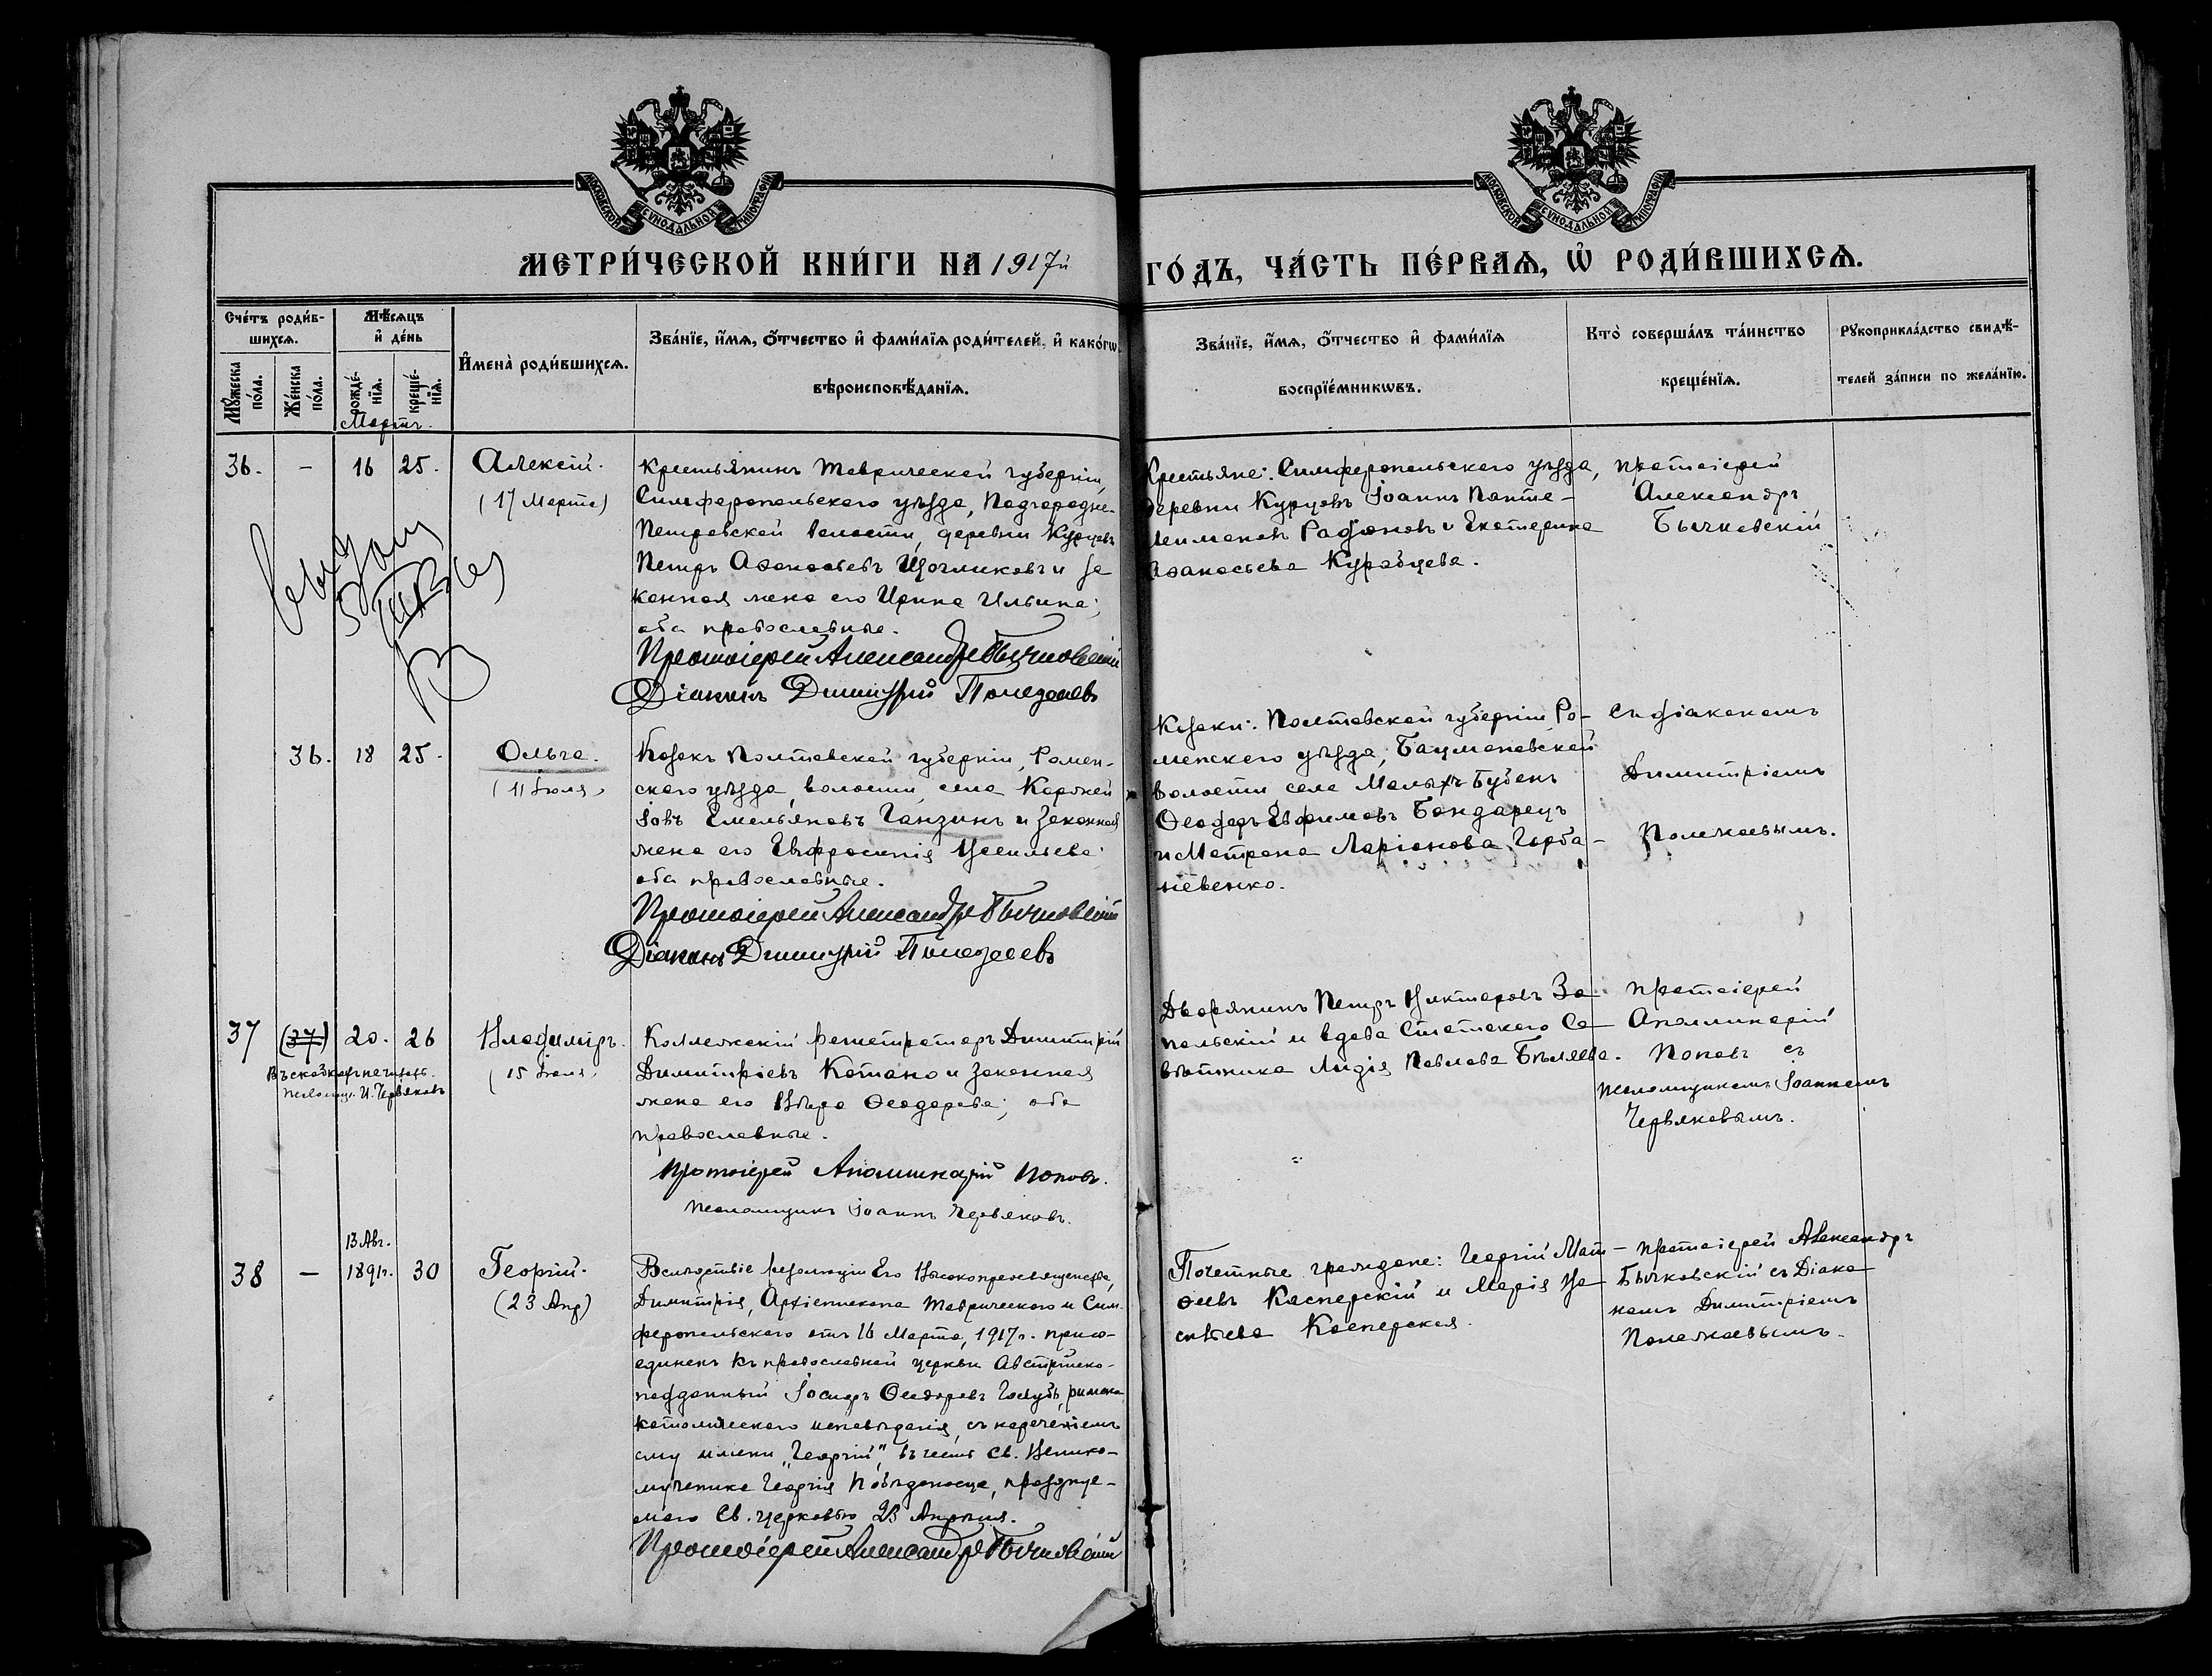 МОСКОВСКОЙ СѴНОДАЛЬНОЙ ТИПОГРАФІИ
МОСКОВСКОЙ СѴНОДАЛЬНОЙ ТИПОГРАФІИ
МЕТРИ́ЧЕСКОЙ КНИ́ГИ НА 1917й
ГО́ДЪ, ЧА́СТЬ ПЕ́РВАѦ, Ѡ҆ РОДИ́ВШИХСѦ.
Сче́тъ роди́в-
шихсѧ.
Мꙋ́жеска
по́ла.
Же́нска
по́ла.
Мѣ́сѧцъ
и҆ де́нь
рожде́-
нїѧ.
креще́-
нїѧ.
И҆мена̀ роди́вшихсѧ.
Зва́нїе, и҆́мѧ, ѻ҆́тчество и҆ фами́лїѧ роди́телей, и҆ како́гѡ
вѣроисповѣ́данїѧ.
Зва́нїе, и҆́мѧ, ѻ҆́тчество и҆ фами́лїѧ
воспрїе́мникѡвъ.
Кто̀ соверша́лъ та́инство
креще́нїѧ.
Рꙋкоприкла́дство свидѣ́-
телей за́писи по жела́нїю.
Мартъ.
36. - 16 25. Алексій.
(17 Марта)
Крестьянинъ Таврической губерніи,
Симферопольскаго уѣзда, Подгородне-
Петровской волости, деревни Курцовъ
Петръ Аѳанасьевъ и за
конная жена его Ирина Ильина;
оба православные.
Протоіерей Александръ Бычковскій
Діаконъ Димитрій Полежаевъ
Крестьяне: Симферопольскаго уѣзда,
деревни Курцовъ Іоаннъ Панте-
леимоновъ Радіоновъ и Екатерина
Аѳанасьева Курабцева.
протоіерей
Александръ
Бычковскій
36. 18 25. Ольга.
(11 Іюля)
Козакъ Полтавской губерніи, Ромен-
скаго уѣзда, волости, села Коржей
Іовъ Емельяновъ Ганзинъ и законная
жена его Евфросинія Васильева;
оба православные.
Протоіерей Александръ Бычковскій
Діаконъ Димитрій Полежаевъ
Козаки: Полтавской губерніи Ро-
менскаго уѣзда,
волости села Малыхъ Бубенъ
Ѳеодоръ Евфимовъ Бондарецъ
и Матрона Ларіонова Горба-
невенко.
съ діакономъ
Димитріемъ
Полежаевымъ.
37 (37) 20. 26 Владиміръ.
(15 Іюля)
Въ скобкахъ
псаломщ. И. Червяковъ
Коллежскій регистраторъ Димитрій
Димитріевъ Котано и законная
жена его Вѣра Ѳеодорова; оба
православные.
Протоіерей Аполлинарій Поповъ.
Псаломщикъ Іоаннъ Червяковъ.
Дворянинъ Петръ Викторовъ За-
польскій и вдова Статскаго Со-
вѣтника Лидія Павлова Бѣляева.
протоіерей
Аполлинарій
Поповъ съ
псаломщикомъ Іоанномъ
Червяковымъ.
13 Авг.
38 - 1891г. 30 Георгій.
(23 Апр)
Вслѣдствіе резолюціи Его Высокопреосвященства,
Димитрія, Архіепископа Таврическаго и Сим-
феропольскаго отъ 16 Марта, 1917г. присо-
единенъ къ православной церкви Австрійско-
подданный Іосифъ Ѳеодоровъ Голубъ, римско
католическаго исповѣданія, съ нареченіемъ
ему имени „Георгій", въ честь Св. Велико-
мученика Георгія Побѣдоносца, празднуе-
маго Св. церковью 23 Апрѣля.
Протоіерей Александръ Бычковскій
Почетные граждане: Георгій Мат-
ѳеевъ Касперскій и Марія Ва-
сильева Касперская.
протоіерей Александръ
Бычковскій съ Діако
номъ Димитріемъ
Полежаевымъ.